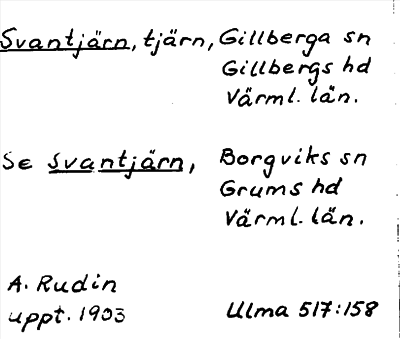 Svantjärn, tjärn, Gillberga sn
Gillbergs hd
Värml. län.
Se Svantjärn, Borgviks sn
Grums hd
Värml. län.
A. Rudin
uppt. 1903 Ulma 517:158